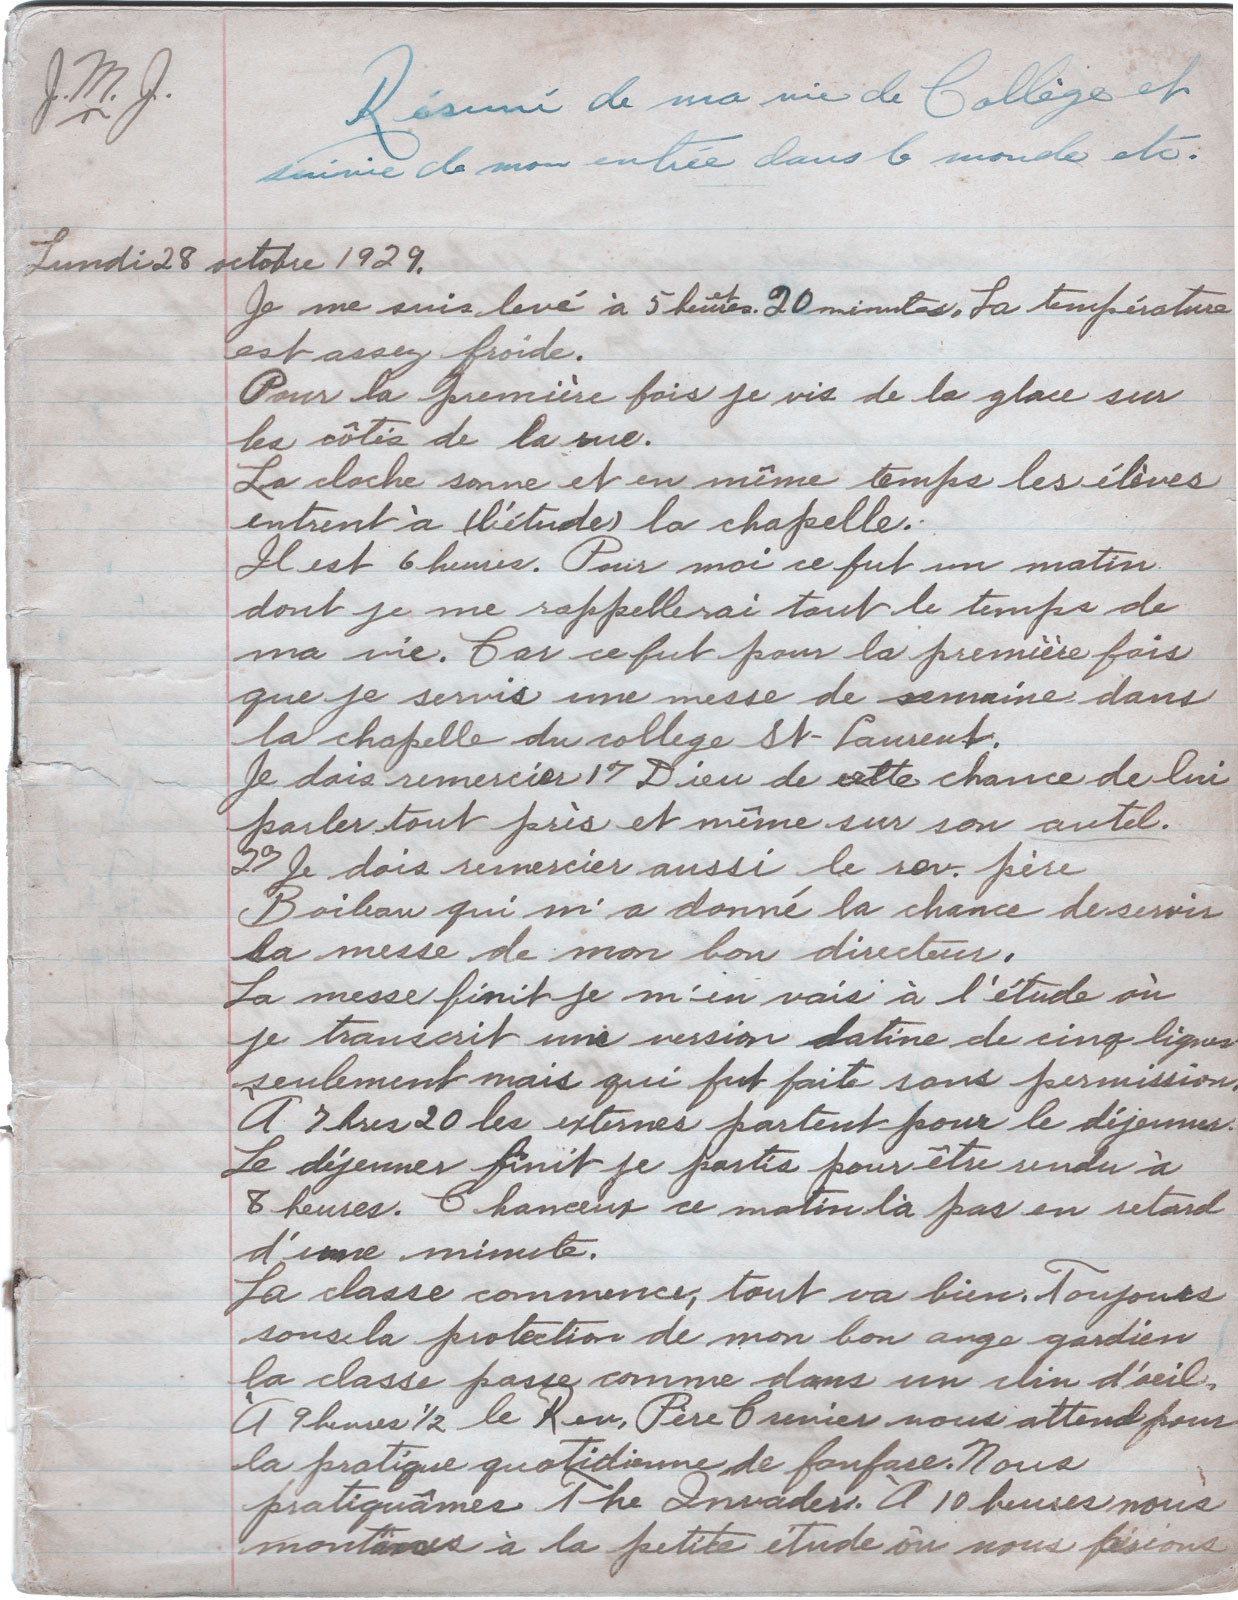 J.M.J.
Résumé de ma vie de Collège et
suivie de mon entrée dans le monde etc.
Lundi 28 octobre 1929.
Je me suis levé à 5 heures et 20 minutes. La température
est assez froide.
Pour la première fois je vis de la glace sur
les côtés de la rue.
La cloche sonne et en même temps les élèves
entrent à (l'étude) la chapelle.
Il est 6 heures. Pour moi ce fut un matin
dont je me rappellerai tout le temps de
ma vie. Car ce fut pour la première fois
que je servis une messe de semaine dans
la chapelle du college St-Laurent.
Je dois remercier 1° Dieu de cette chance de lui
parler tout près et même sur son autel.
2° Je dois remercier aussi le rev. père
Boileau qui m'a donné la chance de servir
la messe de mon bon directeur.
La messe finit je m'en vais à l'étude où
je transcrit une version latine de cinq lignes
seulement mais qui fut faite sans permission.
A 7 hres 20 les externes partent pour le déjeuner.
Le déjeuner finit je partis pour être rendu à
8 heures. Chanceux ce matin là pas en retard
d'une minute.
La classe commence, tout va bien. Toujours
sous la protection de mon bon ange gardien
la classe passe comme dans un clin d'oeil.
À 9 heures 1/2 le Rev. Père Crevier nous attend pour
la pratique quotidienne de fanfare. Nous
pratiquâmes The Invader. À 10 heures nous
montâmes à la petite étude où nous fésions